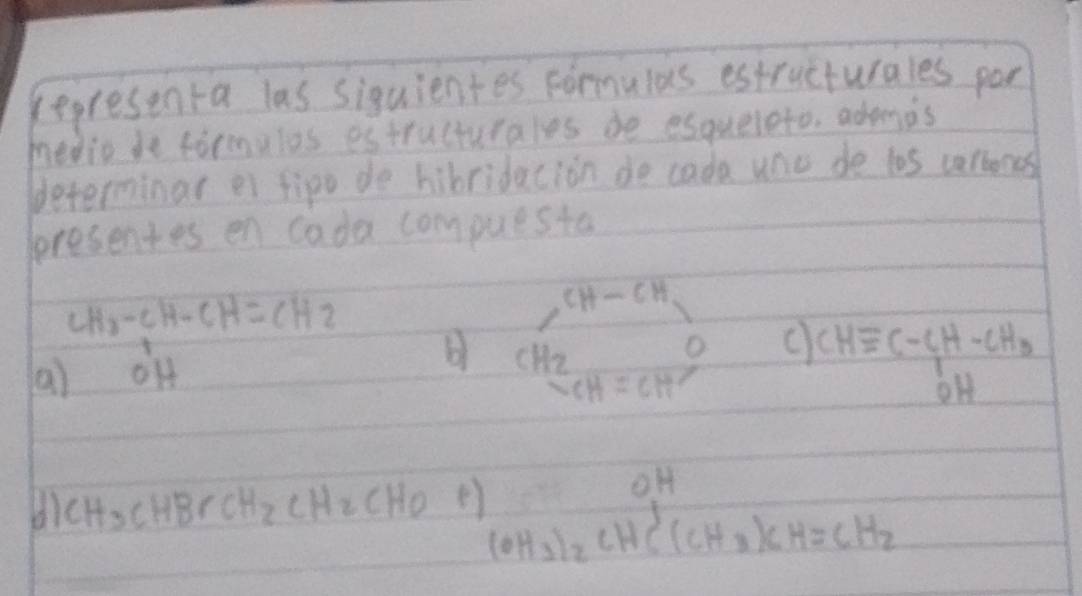 representa las siguientes formulas estructurales por
medio de fórmulas estructurales de esqueleto. ademas
determinar el tipo de hibridación de cada uno de los carbonos
presentes en cada compuesta
CH3-CH-CH=CH2
a) OH
b) CH-CH
CH2 O
CH=CH
c) CH≡C-CH-CH3
OH
d) CH3CHBrCH2CH2CHO e) OH
(CH3)2CHC(CH3)CH=CH2